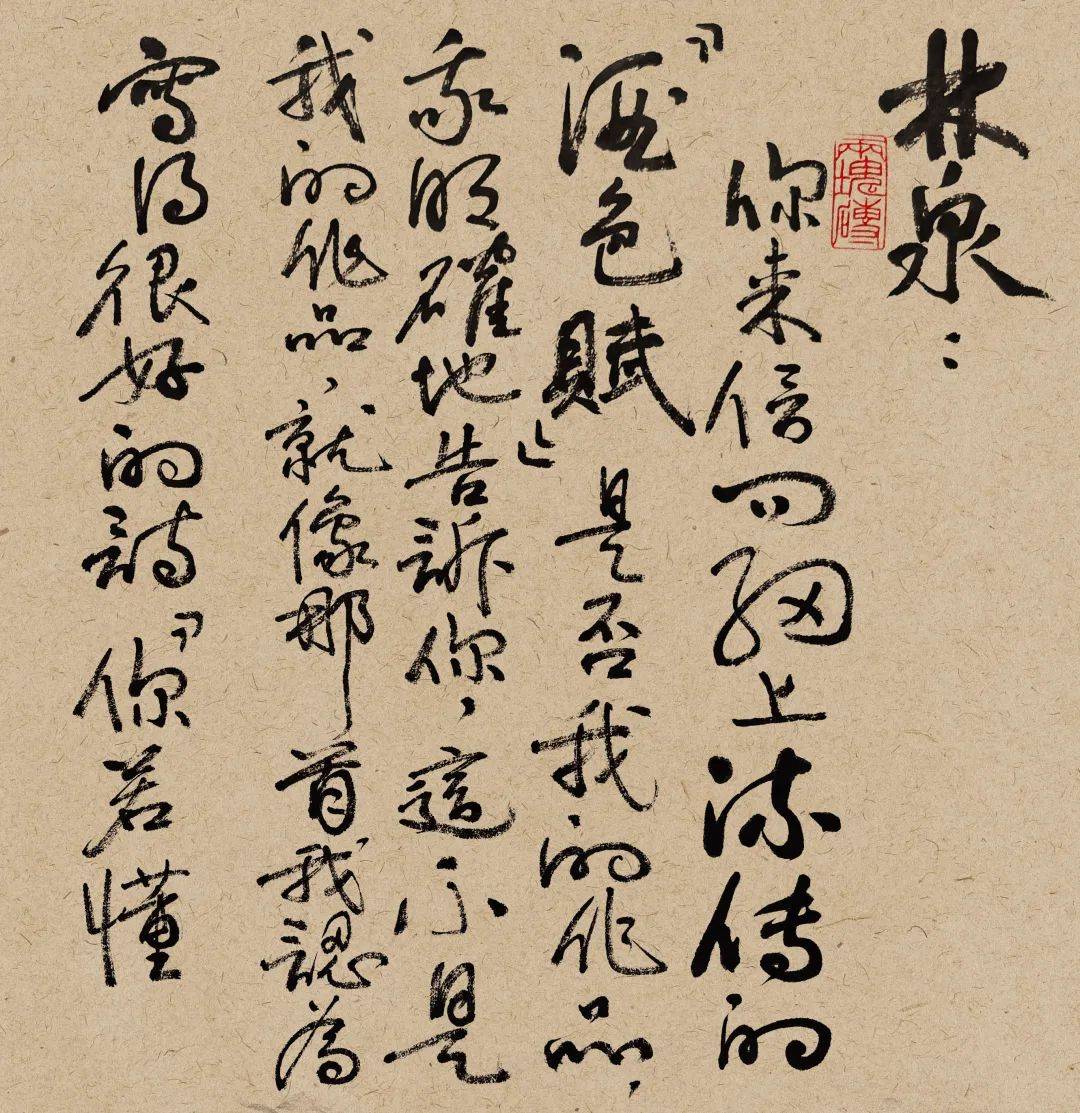 林泉：
兩塊磚
你来信问網上流傳的
『酒色賦』是否我的作品，
我明確地告訴你，這不是
我的作品，就像那首我認為
寫得很好的詩『你若懂